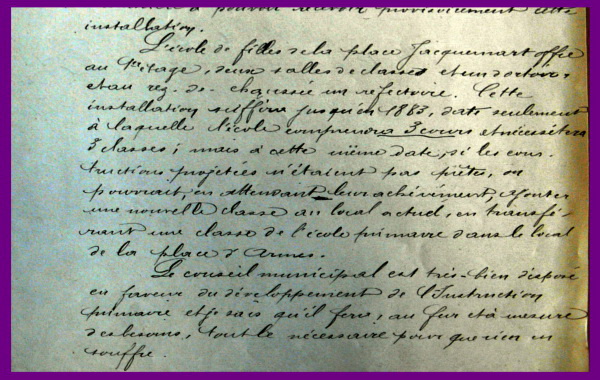 à pouvoir recevoir provisoirement cette
installation.
L'école de filles de la place Jacquemart offre
au 1er étage, deux salles de classes et un dortoir,
et au rez-de-chaussée un réfectoire. Cette
installation suffira jusqu'en 1883, date seulement
à laquelle l'école comprendra 3 cours et nécessitera
3 classes; mais à cette même date, si les cons-
tructions projetées n'étaient pas prêtes, on
pourrait, en attendant leur achèvement, ajouter
une nouvelle classe au local actuel, en transfé-
rant une classe de l'école primaire dans le local
de la place d'Armes.
Le conseil municipal est très-bien disposé
en faveur du développement de l'Instruction
primaire et je sais qu'il fera, au fur et à mesure
des besoins, tout le nécessaire pour que rien en
souffre.